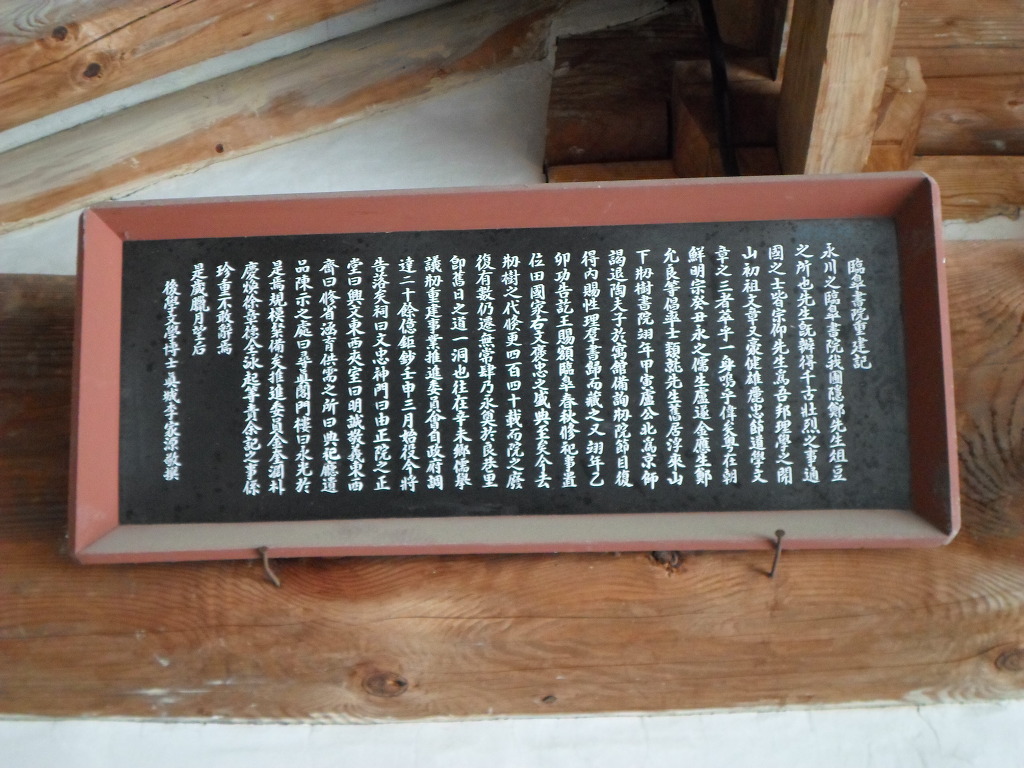 臨皐書院重建記
永川之臨皐書院我圃隱鄭先生俎豆
之所也先生旣辦得千古壯烈之事通
國之士皆宗仰先生爲吾邦理學之開
山初祖文章又豪健雄麗忠節道學文
章之三者萃乎一身嗚乎偉矣粤在朝
鮮明宗癸丑永之儒生盧遂金應生鄭
允良等倡率士類就先生舊居浮來山
下刱樹書院翊年甲寅盧公北爲京師
謁退陶夫子於寓館備詢刱院節目復
得內賜性理羣書歸而藏之又翊年乙
卯功告訖王賜額臨皐春秋修祀事置
位田國家右文褒忠之盛典至矣今去
刱樹之代候更四百四十載而院之廢
復有數仍遷無常肆乃永奠於良巷里
卽舊日之道一洞也往在辛未鄕儒擧
議刱重建事業推進委員會自政府調
達二十餘億鉅鈔壬申三月始役今將
告落矣祠曰文忠神門曰由正院之正
堂曰興文東西夾室曰明誠敬義東西
齋曰修省涵育供需之所曰典祀廳遺
品陳示之處曰尋眞閣門樓曰永光於
是焉規模誾備矣推進委員金
慶煥徐章德全泳起等責余記之事係
珍重不敢辭焉
是歲臘月望后
後學文學博士眞城李家源敬撰